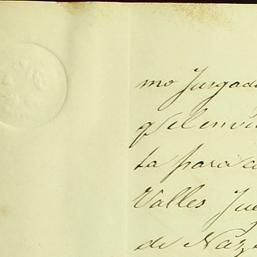 mo Juzgado
q̃ el envi
ta para a
Valles Jue
de Naz